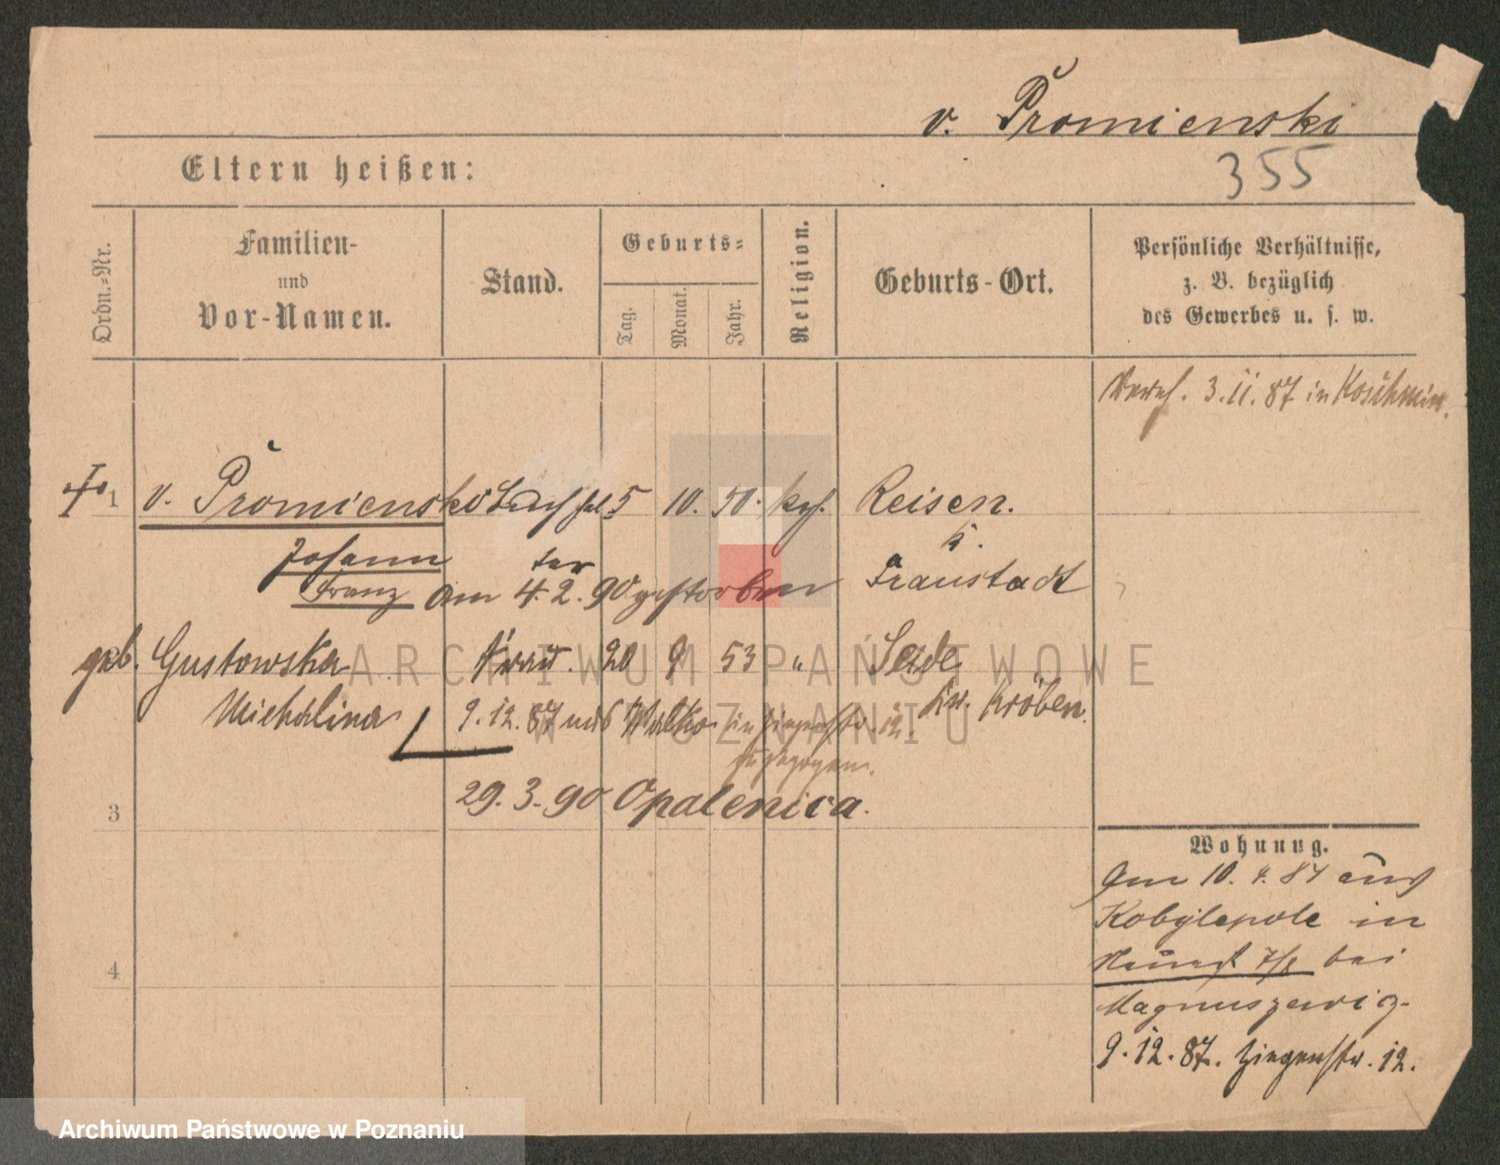 v. Promienski
355
Eltern heißen:
Ordn.-Nr.
Familien-
und
Vor-Namen.
Stand.
Geburts-
Tag.
Monat.
Jahr.
Religion.
Geburts-Ort.
Persönliche Verhältnisse,
z. B. bezüglich
des Gewerbes u. s. w.
Vereh. 3.11.87 in Koschmin.
1 v. Promienski Buchhal 5 10. 50. kth. Reisen.
ter
Johann
Franz am 4.2.90 gestorben Fraustadt
geb. Gustowska Frau. 20 9 53 " Sede
Michalina 9.12.87 Kr. Kröben.
zugezogen.
29.3.90 Opalenica.
3
4
Wohnung.
Am 10.4.87 aus
Kobylepole in
bei
9.12.87. Ziegenstr. 12.
ARCHIWUM PAŃSTWOWE
W POZNANIU
Archiwum Państwowe w Poznaniu